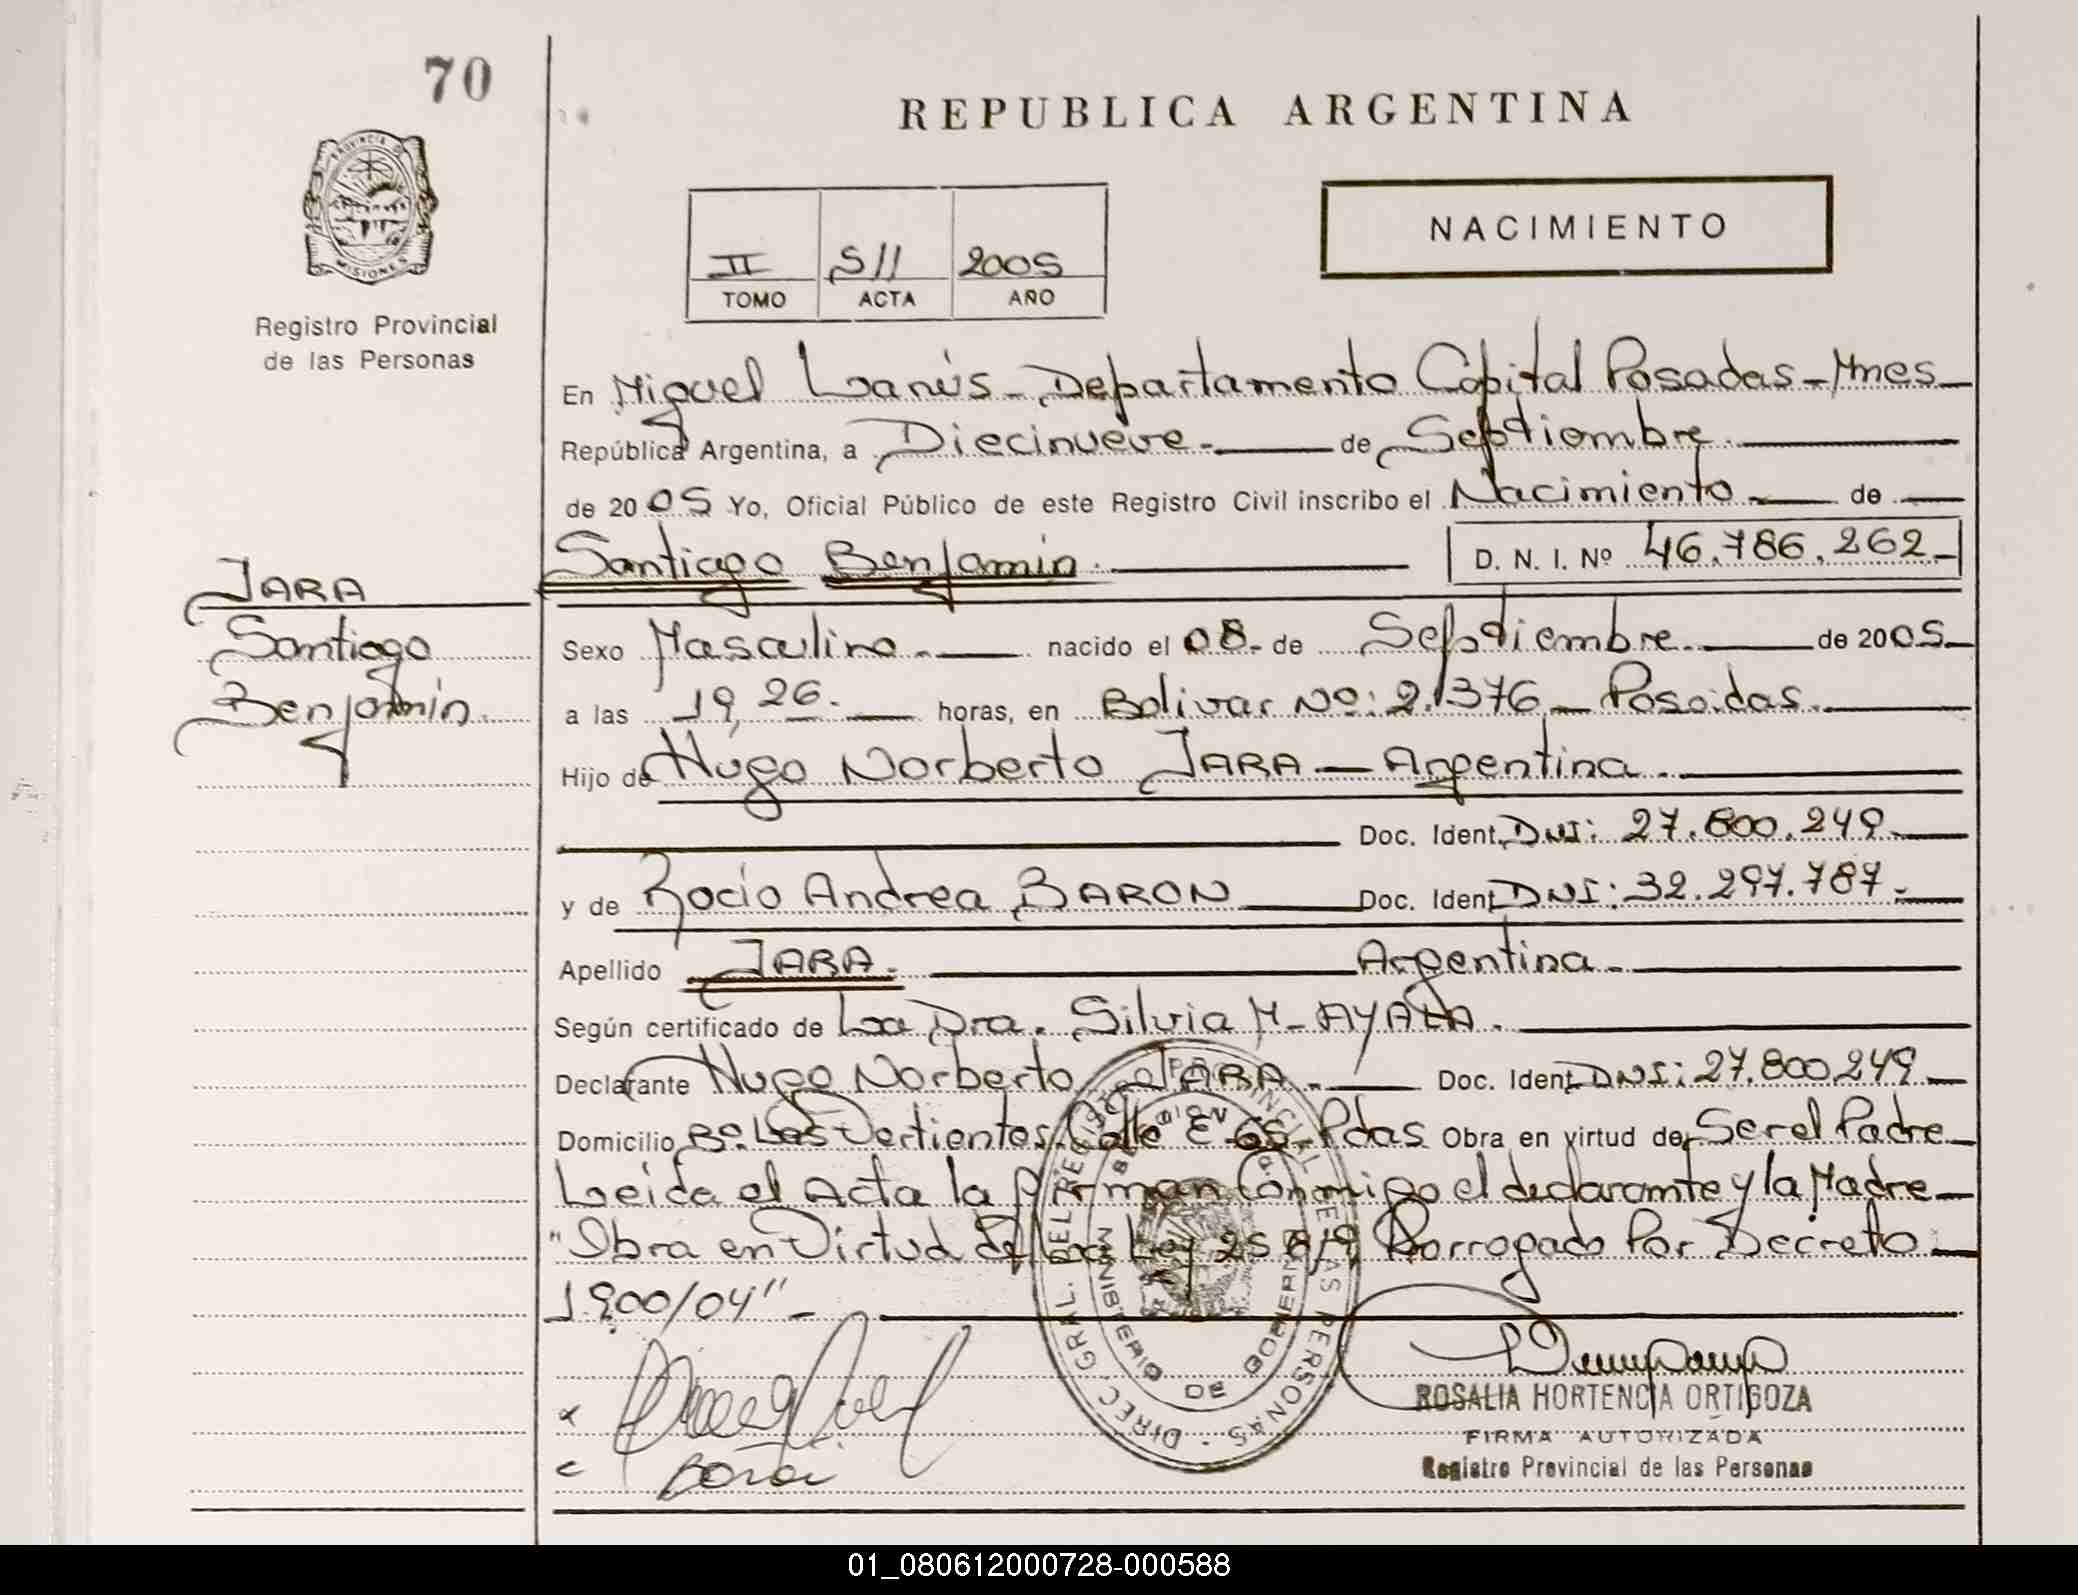 70
REPUBLICA ARGENTINA
PROVINCIA D
MISIONES
Registro Provincial
de las Personas
NACIMIENTO
II S11 2005
TOMO ACTA AÑO
En Miguel Lanús - Departamento Capital Posadas - Mnes
República Argentina, a Diecinueve. de Septiembre.
de 2005 Yo, Oficial Público de este Registro Civil inscribo el Nacimiento de
Santiago Benjamin. D. N. I. Nº 46.786.262
JARA
Santiago
Benjamin.
Sexo Masculino. nacido el 08. de Septiembre. de 2005
a las 19,26. horas, en Bolivar Nº: 2.376 - Posadas.
Hijo de Hugo Norberto JARA - Argentina.
Doc. Ident. DNI: 27.800.249.
y de Rocio Andrea BARON Doc. Ident. DNI: 32.297.787.
Apellido JARA. Argentina.
Según certificado de La Dra. Silvia M. AYALA.
Declarante Hugo Norberto JARA. Doc. Ident. DNI: 27.800.249
Domicilio Bº. Las Vertientes Calle E 65 - Pdas Obra en virtud de Ser el Padre
Leida el Acta la firman Conmigo el declarante y la Madre
"Obra en Virtud de la Ley 25.819 Prorrogado Por Decreto
1.900/04"
DIREC. GRAL. DEL REGISTRO PROVINCIAL DE LAS PERSONAS
MINISTERIO DE GOBIERNO
ROSALIA HORTENCIA ORTIGOZA
FIRMA AUTORIZADA
Registro Provincial de las Personas
01_080612000728-000588